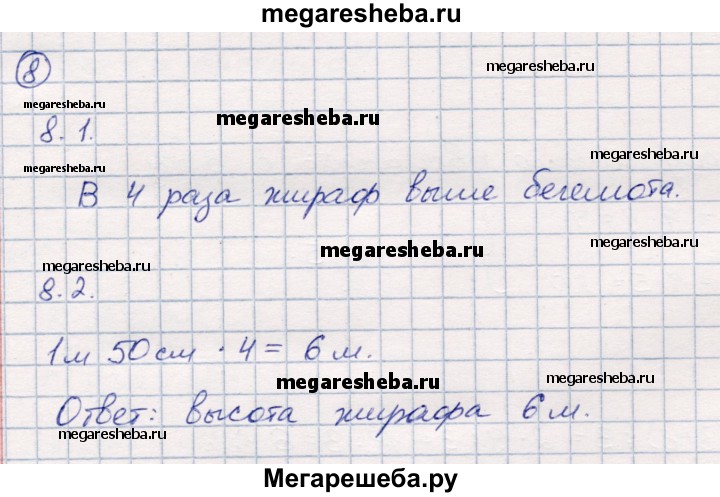 megaresheba.ru
8
megaresheba.ru
megaresheba.ru
megaresheba.ru
8.1.
megaresheba.ru
megaresheba.ru
В 4 раза жираф выше бегемота.
megaresheba.ru
megaresheba.ru
megaresheba.ru
8.2.
megaresheba.ru
1м 50см · 4 = 6 м.
megaresheba.ru
megaresheba.ru
Ответ: высота жирафа 6 м.
megaresheba.ru
Мегарешеба.ру